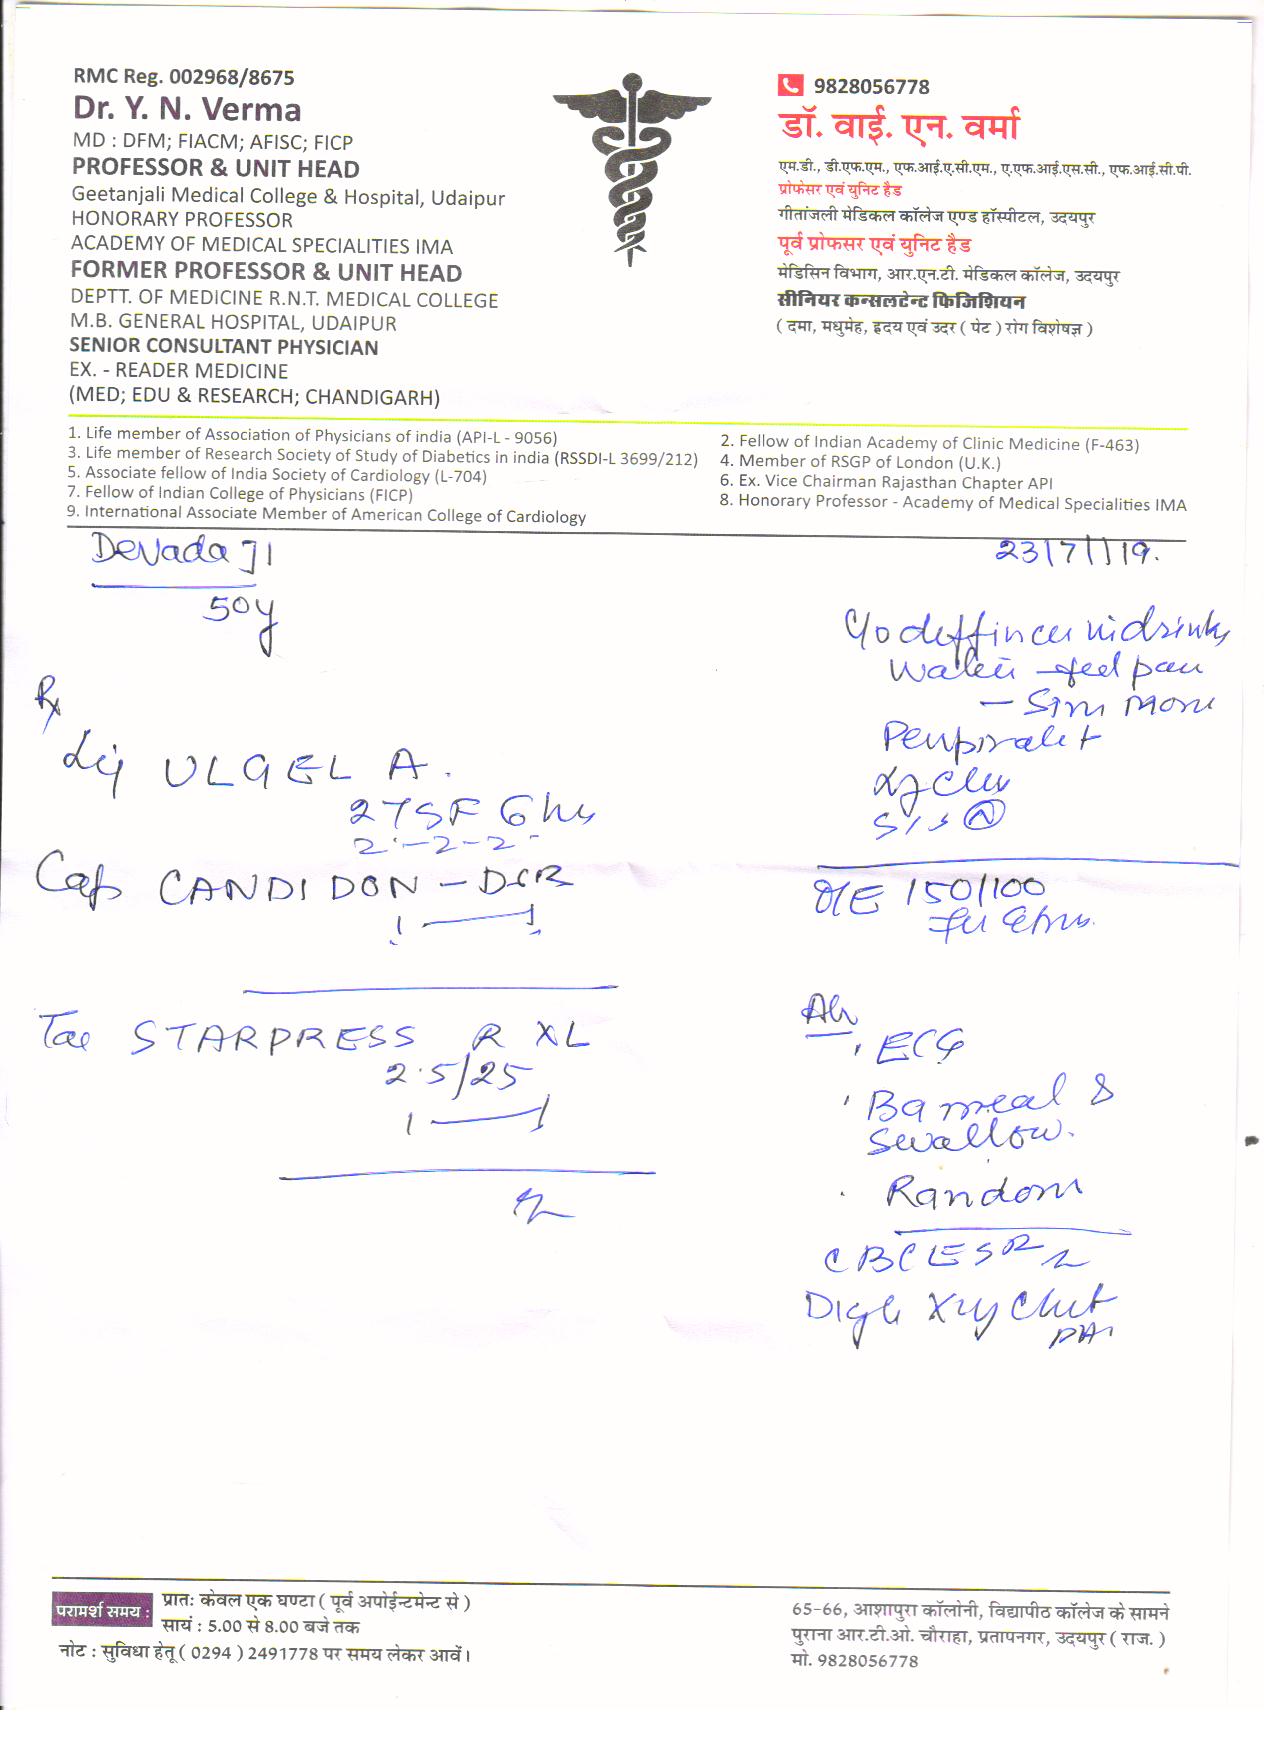 RMC Reg. 002968/8675
Dr. Y. N. Verma
MD : DFM; FIACM; AFISC; FICP
PROFESSOR & UNIT HEAD
Geetanjali Medical College & Hospital, Udaipur
HONORARY PROFESSOR
ACADEMY OF MEDICAL SPECIALITIES IMA
FORMER PROFESSOR & UNIT HEAD
DEPTT. OF MEDICINE R.N.T. MEDICAL COLLEGE
M.B. GENERAL HOSPITAL, UDAIPUR
SENIOR CONSULTANT PHYSICIAN
EX. - READER MEDICINE
(MED; EDU & RESEARCH; CHANDIGARH)
9828056778
डॉ. वाई. एन. वर्मा
एम.डी., डी.एफ.एम., एफ.आई.ए.सी.एम., ए.एफ.आई.एस.सी., एफ.आई.सी.पी.
प्रोफेसर एवं युनिट हैड
गीतांजली मेडिकल कॉलेज एण्ड हॉस्पीटल, उदयपुर
पूर्व प्रोफसर एवं युनिट हैड
मेडिसिन विभाग, आर.एन.टी. मेडिकल कॉलेज, उदयपुर
सीनियर कन्सलटेन्ट फिजिशियन
( दमा, मधुमेह, हृदय एवं उदर ( पेट ) रोग विशेषज्ञ )
1. Life member of Association of Physicians of india (API-L - 9056)
2. Fellow of Indian Academy of Clinic Medicine (F-463)
3. Life member of Research Society of Study of Diabetics in india (RSSDI-L 3699/212)
4. Member of RSGP of London (U.K.)
5. Associate fellow of India Society of Cardiology (L-704)
6. Ex. Vice Chairman Rajasthan Chapter API
7. Fellow of Indian College of Physicians (FICP)
8. Honorary Professor - Academy of Medical Specialities IMA
9. International Associate Member of American College of Cardiology
Devada JI
50y
23/7/19.
Rx
ULGEL A.
2 TSF 6 hrs
2-2-2
Cap CANDIDON - DSR
1 — 1
Tab STARPRESS R XL
2.5/25
1 — 1
feel pain
O/E 150/100
ECG
Ba meal &
Swallow.
Random
CBC ESR
Xray Chest
परामर्श समय :
प्रातः केवल एक घण्टा ( पूर्व अपोईन्टमेन्ट से )
सायं : 5.00 से 8.00 बजे तक
नोट : सुविधा हेतू ( 0294 ) 2491778 पर समय लेकर आवें।
65-66, आशापुरा कॉलोनी, विद्यापीठ कॉलेज के सामने
पुराना आर.टी.ओ. चौराहा, प्रतापनगर, उदयपुर ( राज. )
मो. 9828056778